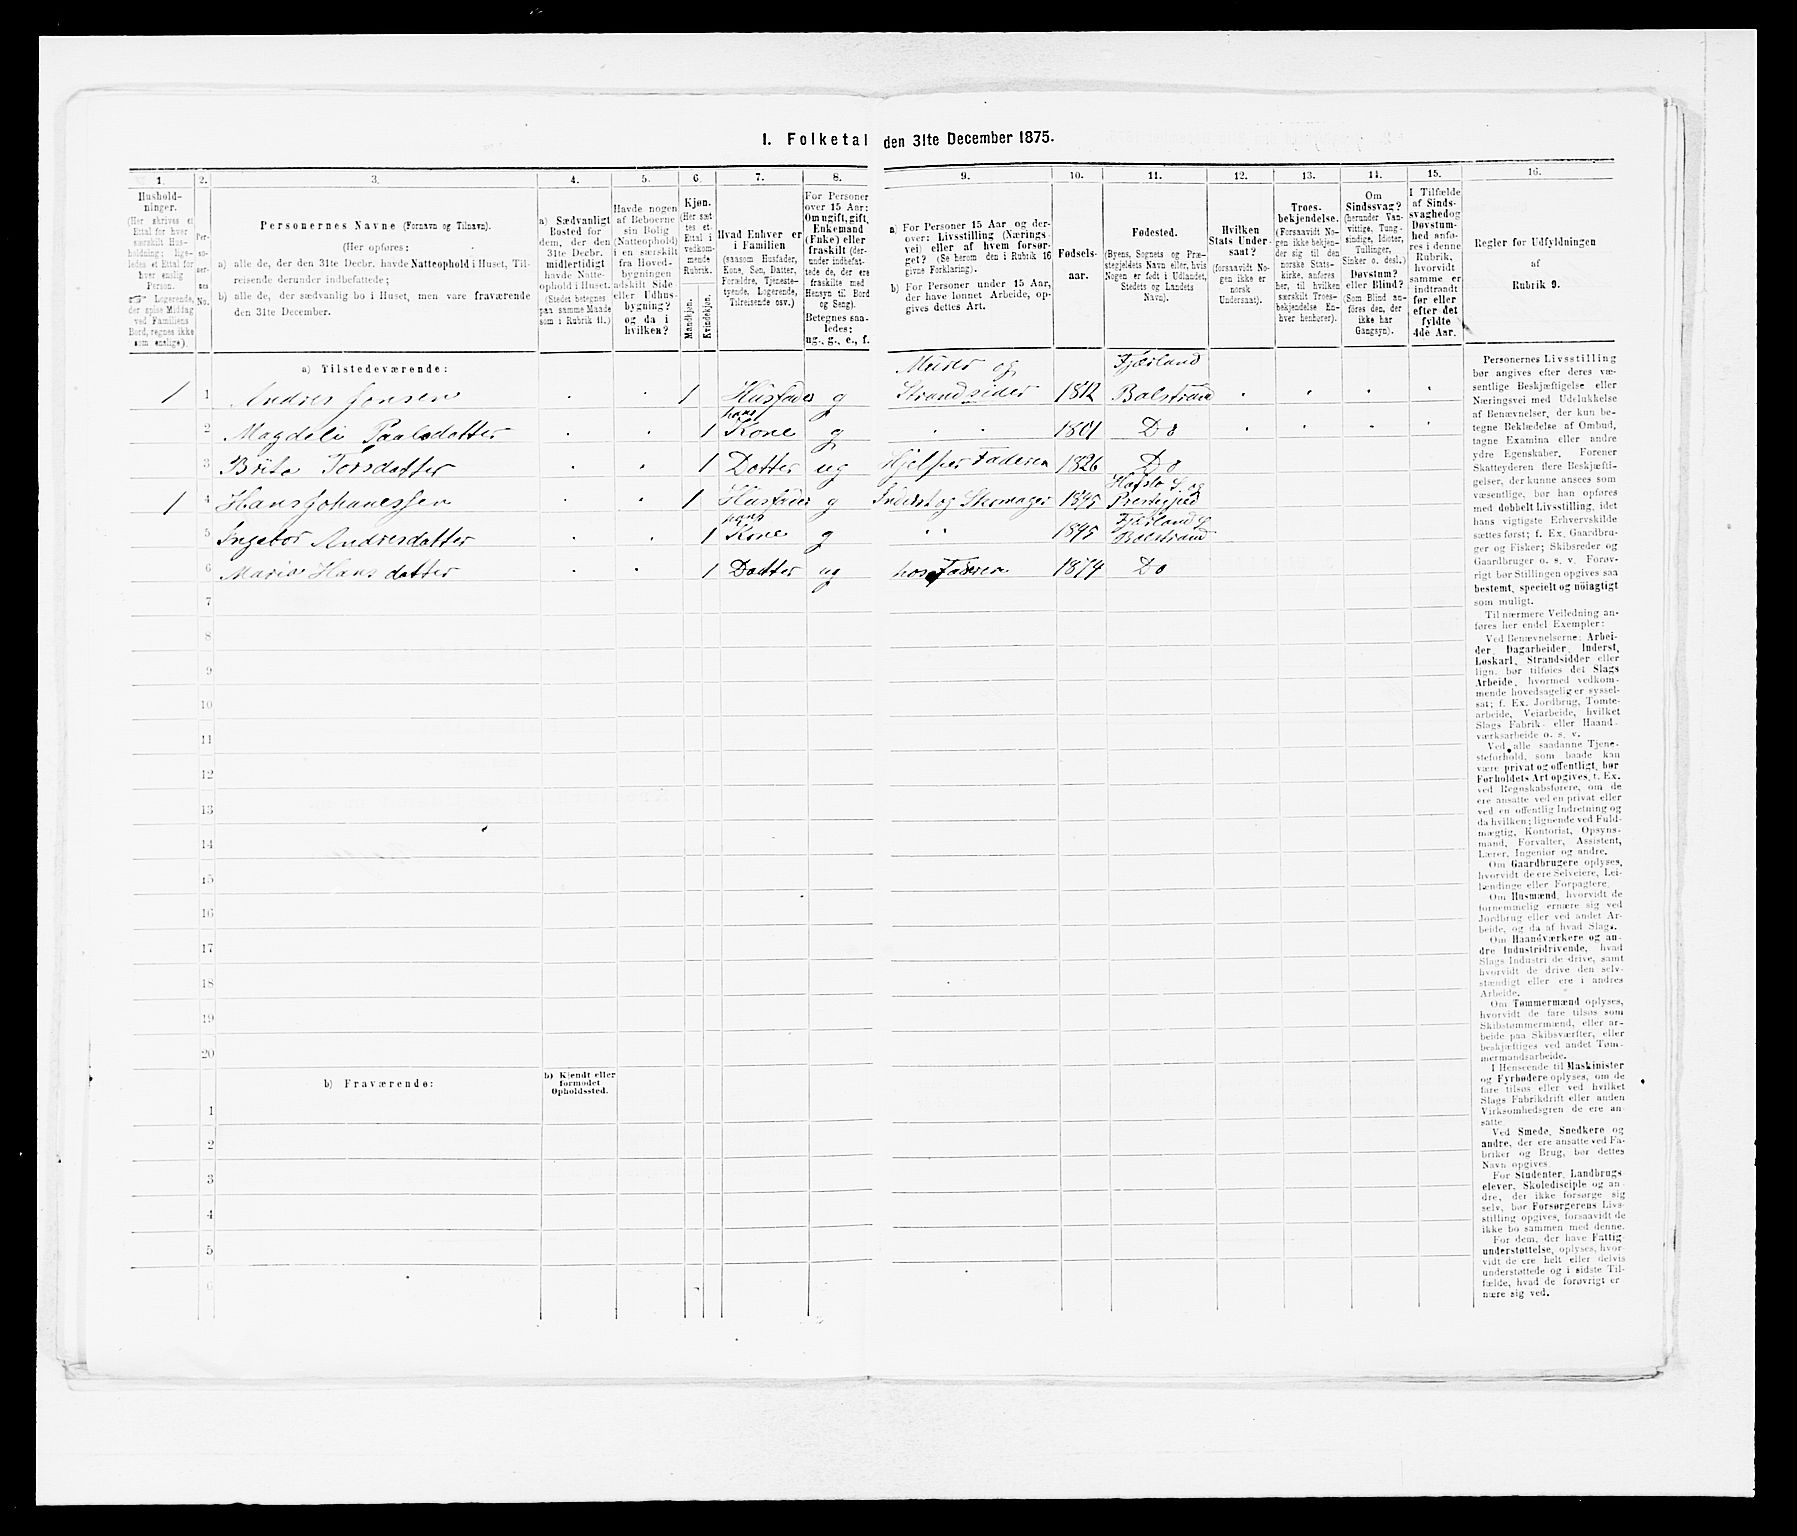 1. Folketal den 31te December 1875.
1.
Hushold-
ninger.
(Her skrives et
Ettal for hver
særskilt Hus-
holdning; lige-
ledes et Ettal for
hver enslig
Person.
☞ Logerende,
der spise Middag
ved Familiens
Bord, regnes ikke
som enslige).
2.
Per-
so-
ner-
nes
No.
3.
Personernes Navne (Fornavn og Tilnavn).
(Her opføres:
a) alle de, der den 31te Decbr. havde Natteophold i Huset, Til-
reisende derunder indbefattede;
b) alle de, der sædvanlig bo i Huset, men vare fraværende
den 31te December.
4.
a) Sædvanligt
Bosted for
dem, der den
31te Decbr.
midlertidigt
havde Natte-
ophold i Huset.
(Stedet betegnes
paa samme Maade
som i Rubrik 11.)
5.
Havde nogen
af Beboerne
sin Bolig
(Natteophold)
i en særskilt
fra Hoved-
bygningen
adskilt Side
eller Udhus-
bygning?
og da i
hvilken?
6.
Kjøn.
(Her sæt
tes et
Ettal i
vedkom-
mende
Rubrik.
Mandkjøn.
Kvindekjøn.
7.
Hvad Enhver er
i Familien
(saasom Husfader,
Kone, Søn, Datter,
Forældre, Tjeneste-
tyende, Logerende,
Tilreisende osv.)
8.
For Personer
over 15 Aar:
Om ugift, gift,
Enkemand
(Enke) eller
fraskilt (der-
under indbefat-
tede de, der ere
fraskilte med
Hensyn til Bord
og Seng).
Betegnes saa-
ledes:
ug., g., e., f.
9.
a) For Personer 15 Aar og der-
over: Livsstilling (Nærings-
vei) eller af hvem forsør-
get? (Se herom den i Rubrik 16
givne Forklaring).
b) For Personer under 15 Aar,
der have lønnet Arbeide, op-
gives dettes Art.
10.
Fødsels-
aar.
11.
Fødested.
(Byens, Sognets og Præ-
stegjeldets Navn eller, hvis
Nogen er født i Udlandet,
Stedets og Landets
Navn).
12.
Hvilken
Stats Under-
saat?
(forsaavidt No-
gen ikke er
norsk
Undersaat).
13.
Troes-
bekjendelse.
(Forsaavidt No-
gen ikke bekjen-
der sig til den
norske Stats-
kirke, anføres
her, til hvilken
særskilt Troes-
bekjendelse En-
hver henhører).
14.
Om
Sindssvag?
(herunder Van-
vittige, Tung-
sindige, Idioter,
Tullinger,
Sinker o. desl.)
Døvstum?
eller Blind?
(Som Blind an-
føres den, der
ikke har
Gangsyn).
15.
I Tilfælde
af Sinds-
svaghed og
Døvstum-
hed anfø-
res i denne
Rubrik,
hvorvidt
samme er
indtraadt
før eller
efter det
fyldte
4de Aar.
16.
Regler for Udfyldningen
af
Rubrik 9.
a) Tilstedeværende:
1 1 Andres Jonsen 1 Husfader g Murer og Strandsider 1812 Fjærland Balstrand
2 Magdeli Paalsdatter 1 hans Kone g 1801 Do
3 Brita Torsdatter 1 Datter ug Hjelper Faderen 1826 Do
1 4 Hans Johanessen 1 Husfader g Inderst og Skomager 1845 Hafslo S. og Prestegjed
5 Ingebor Andresdatter 1 hans Kone g 1845 Fjærland S Balstrand
6 Maria Hansdatter 1 Datter ug hos Faderen 1874 Do
7
8
9
10
11
12
13
14
15
16
17
18
19
20
b) Fraværende:
b) Kjendt eller
formodet
Opholdssted.
1
2
3
4
5
6
Personernes Livsstilling
bør angives efter deres væ-
sentlige Beskjæftigelse eller
Næringsvei med Udelukkelse
af Benævnelser, der kun be-
tegne Beklædelse af Ombud,
tagne Examina eller andre
ydre Egenskaber. Forener
Skatteyderen flere Beskjæfti-
gelser, der kunne ansees som
væsentlige, bør han opføres
med dobbelt Livsstilling, idet
hans vigtigste Erhvervskilde
sættes først; f. Ex. Gaardbru-
ger og Fisker; Skibsreder og
Gaardbruger o. s. v. Forøv-
rigt bør Stillingen opgives saa
bestemt, specielt og nøiagtigt
som muligt.
Til nærmere Veiledning an-
føres her endel Exempler:
Ved Benævnelserne: Arbei-
der, Dagarbeider, Inderst,
Løskarl, Strandsidder eller
lign. bør tilføies det Slags
Arbeide, hvormed vedkom-
mende hovedsagelig er syssel-
sat; f. Ex. Jordbrug, Tomte-
arbeide, Veiarbeide, hvilket
Slags Fabrik- eller Haand-
værksarbeide o. s. v.
Ved alle saadanne Tjene-
steforhold, som baade kan
være privat og offentligt, bør
Forholdets Art opgives, f. Ex.
ved Regnskabsførere, om de
ere ansatte ved en privat eller
ved en offentlig Indretning og
da hvilken; lignende ved Fuld-
mægtig, Kontorist, Opsyns-
mand, Forvalter, Assistent,
Lærer, Ingeniør og andre.
Om Gaardbrugere oplyses,
hvorvidt de ere Selveiere, Lei-
lændinge eller Forpagtere.
Om Husmænd, hvorvidt de
fornemmelig ernære sig ved
Jordbrug eller ved andet Ar-
beide, og da af hvad Slags.
Om Haandværkere og an-
dre Industridrivende, hvad
Slags Industri de drive, samt
hvorvidt de drive den selv-
stændigt eller ere i andres
Arbeide.
Om Tømmermænd oplyses,
hvorvidt de fare tilsøs som
Skibstømmermænd, eller ar-
beide paa Skibsværfter, eller
beskjæftiges ved andet Tøm-
mermandsarbeide.
I Henseende til Maskinister
og Fyrbødere oplyses, om de
fare tilsøs eller ved hvilket
Slags Fabrikdrift eller anden
Virksomhedsgren de ere an-
satte.
Ved Smede, Snedkere og
andre, der ere ansatte ved Fa-
briker og Brug, bør dettes
Navn opgives.
For Studenter, Landbrugs-
elever, Skoledisciple og an-
dre, der ikke forsørge sig
selv, bør Forsørgerens Livs-
stilling opgives, forsaavidt de
ikke bo sammen med denne.
For dem, der have Fattig-
understøttelse, oplyses, hvor-
vidt de ere helt eller delvis
understøttede og i sidste Til-
fælde, hvad de forøvrigt er-
nære sig ved.